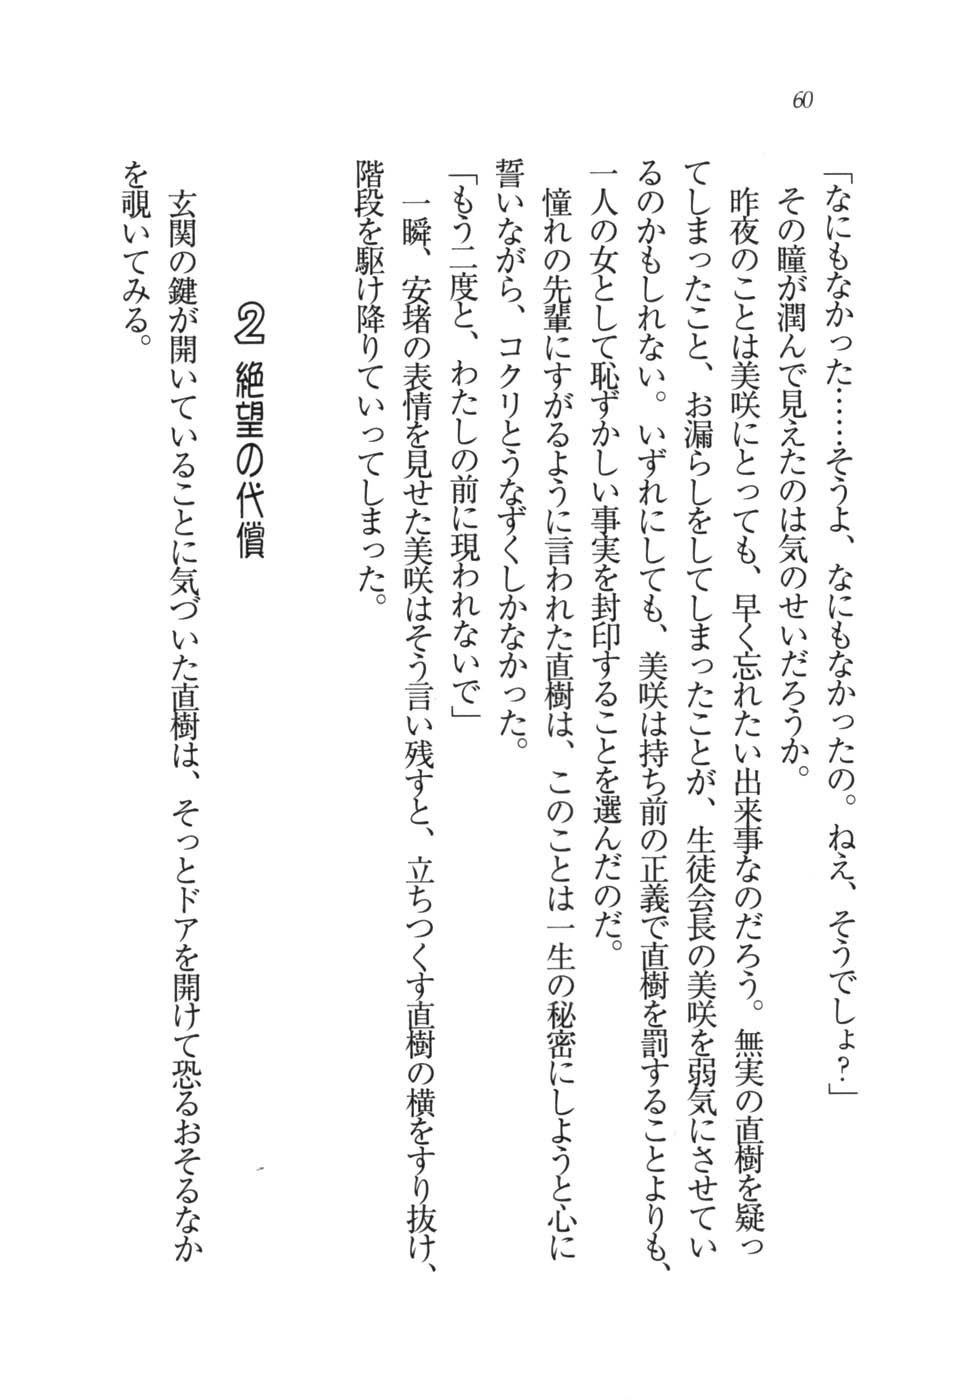 60
「なにもなかった……そうよ、なにもなかったの。ねえ、そうでしょ？」
その瞳が潤んで見えたのは気のせいだろうか。
昨夜のことは美咲にとっても、早く忘れたい出来事なのだろう。無実の直樹を疑っ
てしまったこと、お漏らしをしてしまったことが、生徒会長の美咲を弱気にさせてい
るのかもしれない。いずれにしても、美咲は持ち前の正義で直樹を罰することよりも、
一人の女として恥ずかしい事実を封印することを選んだのだ。
憧れの先輩にすがるように言われた直樹は、このことは一生の秘密にしようと心に
誓いながら、コクリとうなずくしかなかった。
「もう二度と、わたしの前に現われないで」
一瞬、安堵の表情を見せた美咲はそう言い残すと、立ちつくす直樹の横をすり抜け、
階段を駆け降りていってしまった。
2 絶望の代償
玄関の鍵が開いていることに気づいた直樹は、そっとドアを開けて恐るおそるなか
を覗いてみる。